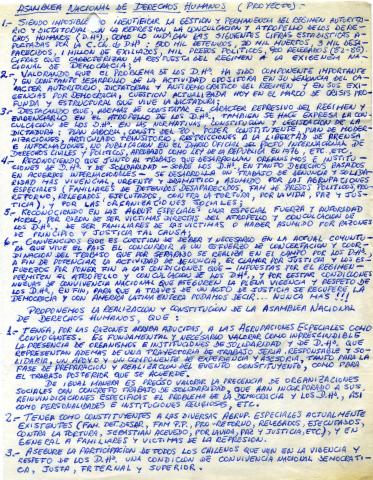 ASAMBLEA NACIONAL DE DERECHOS HUMANOS (PROYECTO):
1.- SIENDO IMPOSIBLE IDENTIFICAR LA GESTIÓN Y PERMANENCIA DEL RÉGIMEN AUTORITA-
RIO Y DICTATORIAL, SIN LA REPRESIÓN, LA CONCULCACIÓN Y ATROPELLO DE LOS DERE-
CHOS HUMANOS (DHs), COMO LO INDICAN LAS SIGUIENTES CIFRAS ESTADÍSTICAS A-
PORTADAS POR LA C. CH. de DHs:
CIFRAS QUE CARACTERIZAN LA RESPUESTA DEL RÉGIMEN A LA EXIGENCIA NA-
CIONAL DE DEMOCRACIA;
2.- VALORANDO QUE EL PROBLEMA DE LOS D.Hs. HA SIDO COMPONENTE IMPORTANTE
Y CONSTANTE DESARROLLO DE LA ACTIVIDAD OPOSITORA EN SU DENUNCIA DEL CA-
RÁCTER AUTORITARIO, DICTATORIAL Y ANTIDEMOCRÁTICO DEL RÉGIMEN Y EN SUS EXI-
GENCIAS POR DEMOCRACIA; CUESTIÓN ACTUALIZADA HOY EN EL MARCO DE CRISIS PRO-
FUNDA Y ESTRUCTURAL QUE VIVE LA DICTADURA;
3.- DESTACANDO QUE, ADEMÁS DE CONSTATAR EL CARÁCTER REPRESIVO DEL RÉGIMEN Y
EVIDENCIARLO EN EL ATROPELLO DE LOS D.Hs., TAMBIÉN SE HACE EXPRESA LA CON-
CULCACIÓN DE LOS D.Hs. EN LAS NORMATIVAS, CONSTITUCIÓN Y LEGISLACIÓN DE LA
DICTADURA: PLAN LABORAL, CONST. DEL 80, PODER CONSTITUYENTE PARA
ARTICULADO TRANSITORIO, RESTRICCIONES A LA LIBERTAD DE PRENSA
E INFORMACIONES, NO PUBLICACIÓN EN EL DIARIO OFICIAL DEL PACTO INTERNACIONAL DE
DERECHOS CIVILES Y POLÍTICOS, APROBADO COMO LEY DE LA REPÚBLICA EN 1976, ETC., ETC.
4.- RECONOCIENDO QUE JUNTO AL TRABAJO QUE DESARROLLAN ORGANISMOS E INSTITU-
CIONES DE D.Hs. Y DE SOLIDARIDAD - SOBRE LOS D.Hs. EN TANTO DERECHOS PACTADOS
EN ACUERDOS INTERNACIONALES - SE DESARROLLA UN TRABAJO DE DENUNCIA Y SOLIDA-
RIDAD VIVENCIAL, URGENTE Y DRAMÁTICO, ASUMIDO POR LAS AGRUPACIONES
ESPECIALES (FAMILIARES DE DETENIDOS DESAPARECIDOS, FAM. DE PRESOS POLÍTICOS, PRO-
RETORNO, RELEGADOS, EJECUTADOS, CONTRA LA TORTURA, POR LA VIDA, PAZ Y JUS-
TICIA), Y POR LAS ORGANIZACIONES SOCIALES;
5.- RECONOCIENDO EN LAS AGRUP. ESPECIALES UNA ESPECIAL FUERZA Y AUTORIDAD
MORAL, POR RAZÓN DE SER VÍCTIMAS DIRECTAS DEL ATROPELLO Y CONCULCACIÓN DE
LOS D.Hs., DE SER FAMILIARES DE LAS VÍCTIMAS O HABER ASUMIDO POR RAZONES
DE PRINCIPIO Y JUSTICIA TAL CAUSA;
6.- CONVENCIDOS QUE ES CUESTIÓN DE DEBER Y NECESARIO EN LA ACTUAL COYUNTU-
RA QUE VIVE EL PAÍS EL CONCURRIR A UN ESFUERZO DE CONCERTACIÓN Y COOR-
DINACIÓN DEL TRABAJO QUE POR SEPARADO SE REALIZA EN EL CAMPO DE LOS D.Hs.
A FIN DE POTENCIAR LA ACTIVIDAD DE DENUNCIA, EL CLAMOR POR JUSTICIA Y LOS ES-
FUERZOS POR PONER FIN A LAS CONDICIONES QUE - IMPUESTAS POR EL RÉGIMEN -
PERMITEN EL ATROPELLO Y CONCULCACIÓN DE LOS D.Hs., Y POR GESTAR CONDICIONES
NUEVAS DE CONVIVENCIA NACIONAL QUE ASEGUREN LA PLENA VIGENCIA Y RESPETO DE
LOS D.Hs., EN FIN PARA QUE A TRAVÉS DE UN ACTO DE JUSTICIA SE RECUPERE LA
DEMOCRACIA Y CON AMÉRICA LATINA ENTERA PODAMOS DECIR... NUNCA MÁS!!!
PROPONEMOS LA REALIZACIÓN Y CONSTITUCIÓN DE LA ASAMBLEA NACIONAL
DE DERECHOS HUMANOS, QUE:
1.- TENGA, POR LAS RAZONES ARRIBA ADUCIDAS, A LAS AGRUPACIONES ESPECIALES COMO
CONVOCANTES. ES FUNDAMENTAL Y NECESARIO VALORAR COMO IMPRESCINDIBLE
LA PRESENCIA DE ORGANISMOS E INSTITUCIONES DE SOLIDARIDAD Y DE D.Hs. QUE
REPRESENTAN ADEMÁS DE UNA TRAYECTORIA DE TRABAJO SERIA, RESPONSABLE Y SO-
LIDARIA, UN MEDIO Y UN COMPONENTE DE EXPERIENCIA Y ASESORÍA, TANTO PARA LA
FASE DE PREPARACIÓN Y REALIZACIÓN DEL EVENTO CONSTITUYENTE, COMO PARA
EL TRABAJO POSTERIOR QUE SE ACUERDE.
DE IGUAL MANERA ES PRECISO VALORAR LA PRESENCIA DE ORGANIZACIONES
SOCIALES CON CONCRETO TRABAJO DE SOLIDARIDAD, QUE HAN INCORPORADO A SUS
REIVINDICACIONES ESPECÍFICAS EL PROBLEMA DE LA DEMOCRACIA Y LOS D.Hs., ASÍ
COMO PERSONALIDADES E INSTITUCIONES RELIGIOSAS, ETC.
2.- TENGA COMO CONSTITUYENTES A LAS DIVERSAS AGRUP. ESPECIALES ACTUALMENTE
EXISTENTES (FAM. DET. DESAP., FAM. P.P., PRO-RETORNO, RELEGADOS, EJECUTADOS,
CONTRA LA TORTURA, SEBASTIÁN ACEVEDO, POR LA VIDA, PAZ Y JUSTICIA, ETC.), Y EN
GENERAL A FAMILIARES Y VÍCTIMAS DE LA REPRESIÓN.
3.- ASEGURE LA PARTICIPACIÓN DE TODOS LOS CHILENOS QUE VEN EN LA VIGENCIA Y
RESPETO DE LOS D.Hs. UNA CONDICIÓN DE CONVIVENCIA NACIONAL DEMOCRÁTI-
CA, JUSTA, FRATERNAL Y SUPERIOR.